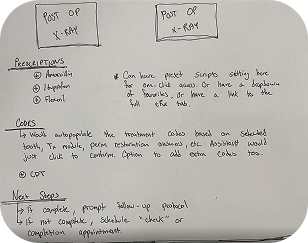 POST OP POST OP
X-RAY X-RAY
PRESCRIPTIONS
⊕ Amoxicillin * Can have preset scripts setting here
⊕ Ibuprofen for one-click access. Or have a dropdown
⊕ Flexeril of favorites, or have a link to the
full eRx tab.
CODES
↳ Would autopopulate the treatment codes based on selected
tooth, Tx module, perm restoration answers, etc. Assistant would
just click to confirm. Option to add extra codes too.
⊕ CDT
Next Steps
↳ If complete, prompt follow-up protocol
↳ If not complete, schedule "check" or
completion appointment.